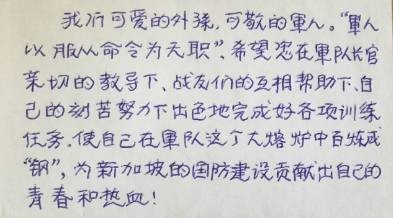 我们可爱的外孫，可敬的軍人。“軍人
以服从命令为天职”，希望您在軍队长官
亲切的教导下、战友们的互相帮助下、自
己的刻苦努力下出色地完成好各项训练
任务。使自己在軍队这个大熔炉中百炼成
“钢”，为新加坡的国防建设贡献出自己的
青春和热血！